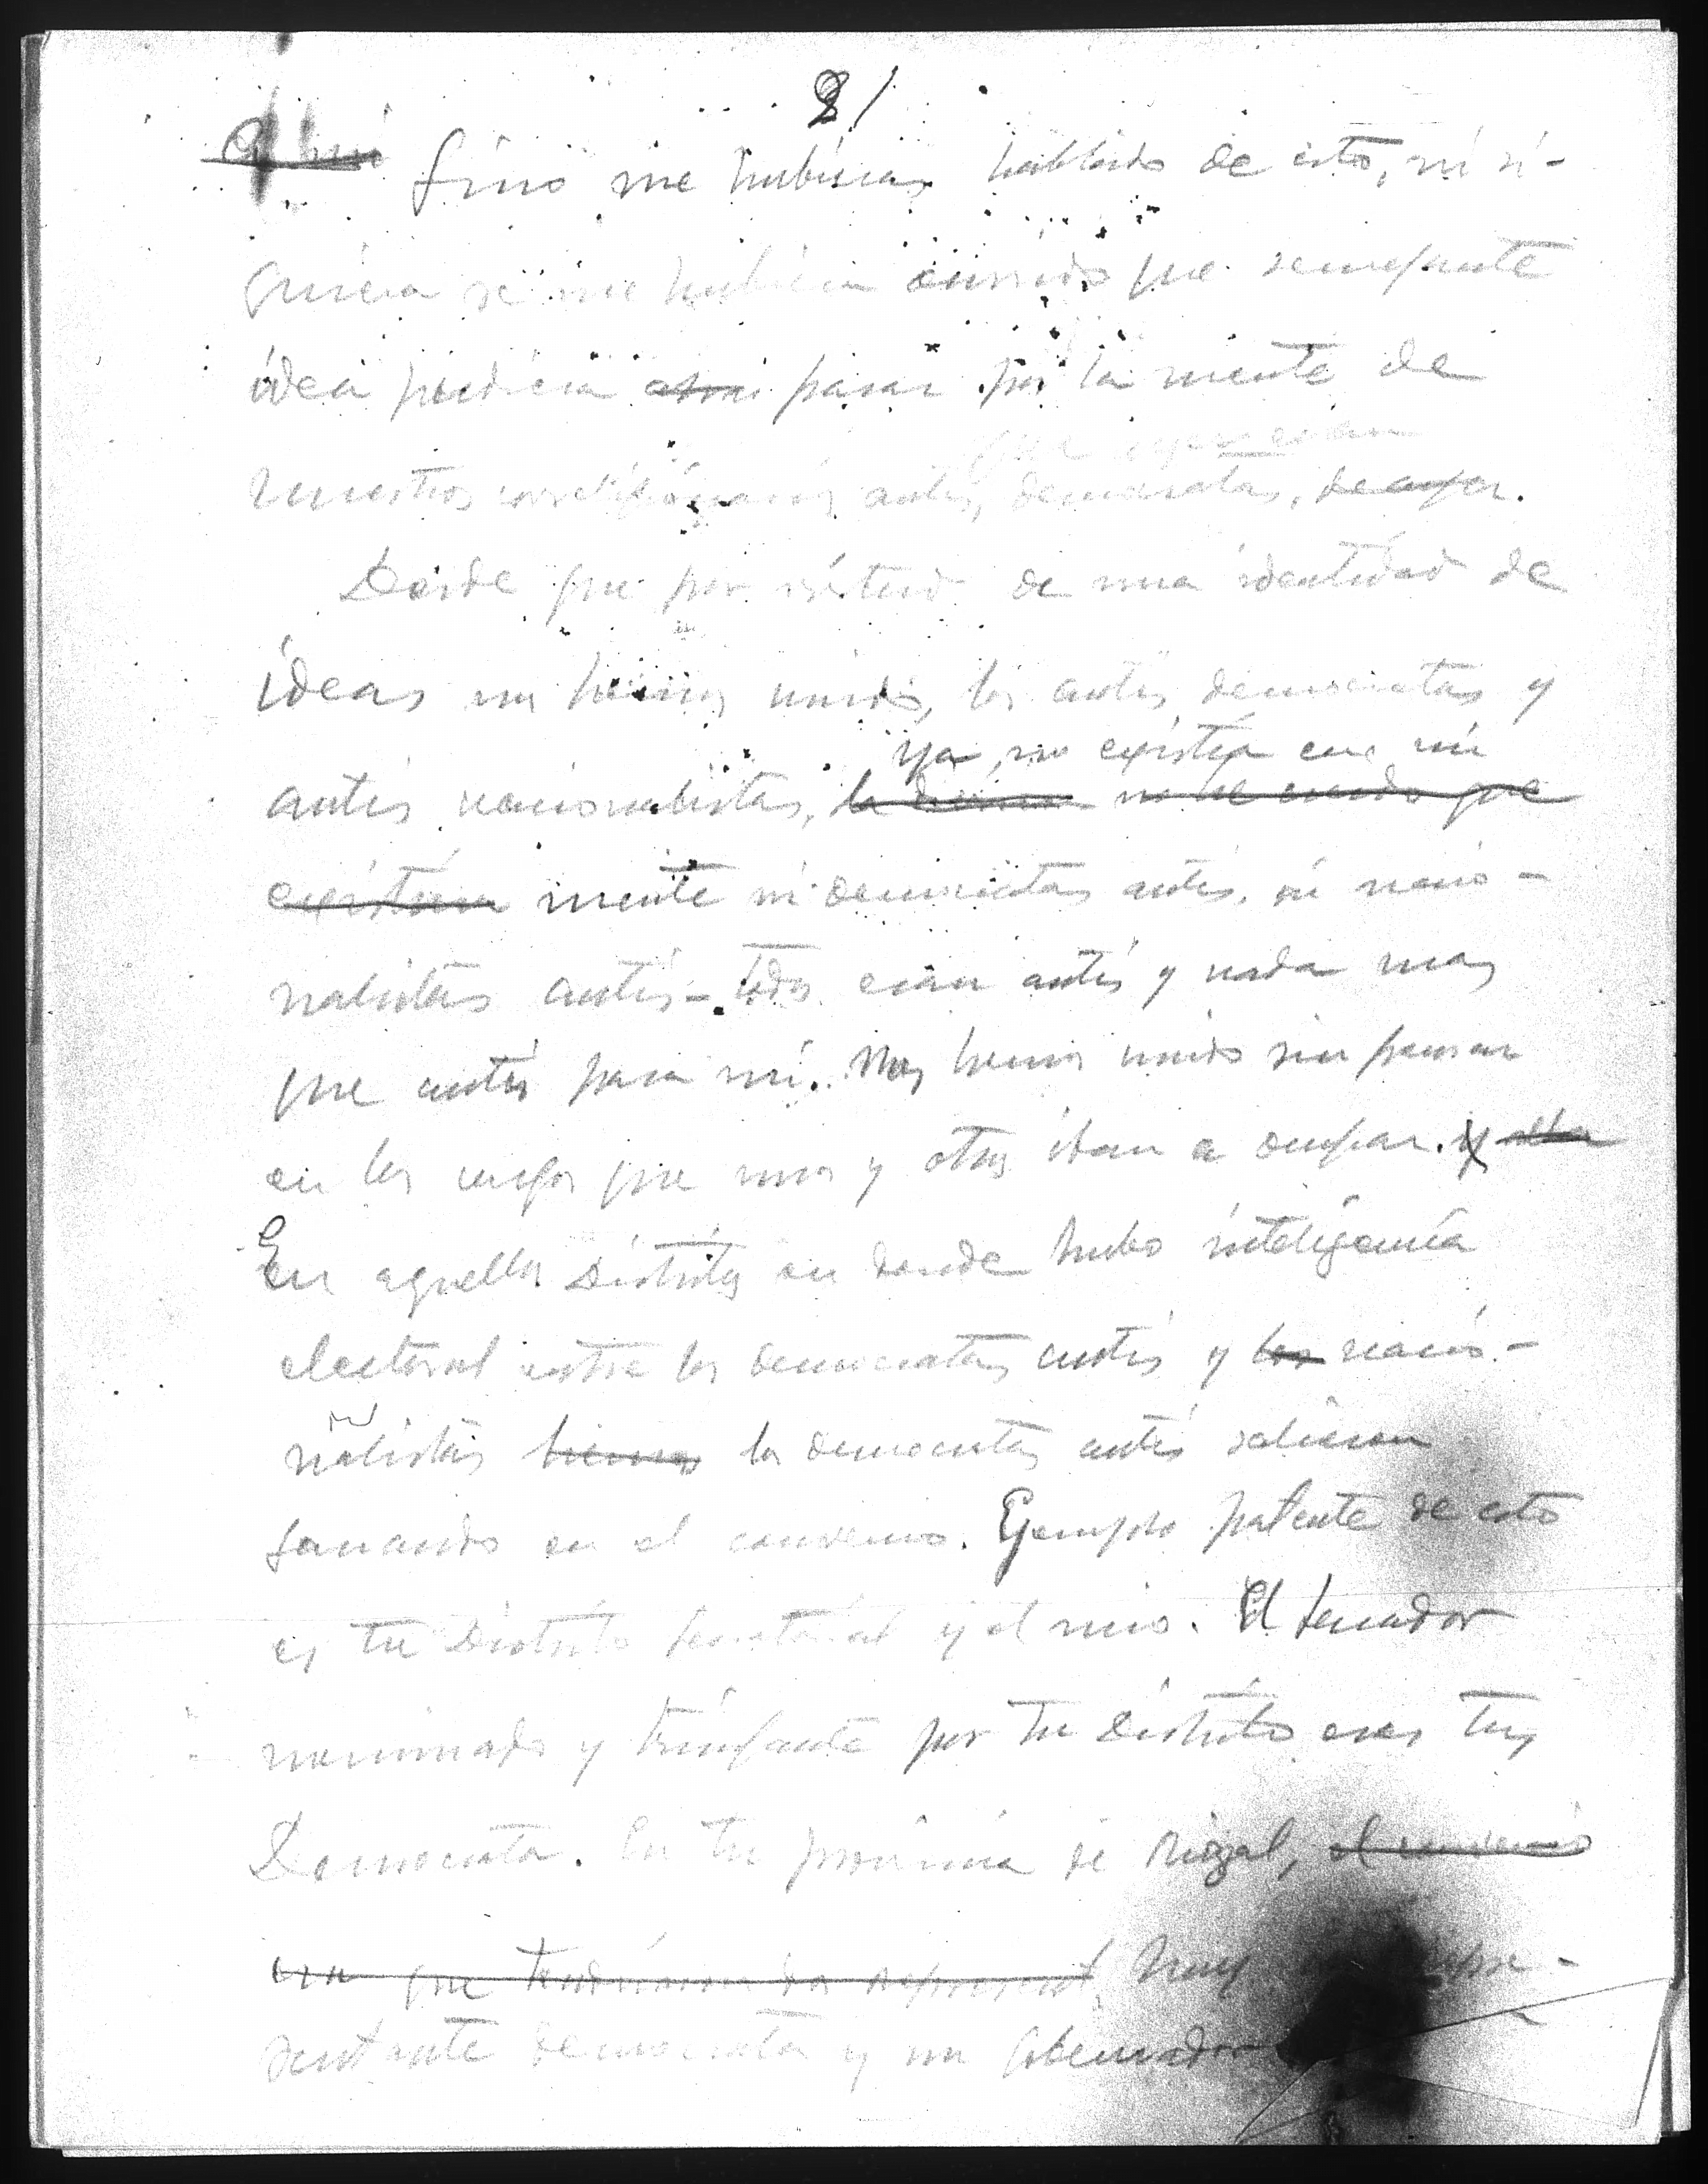 2/
Si no me hubieras hablado de esto, ni si-
quiera se me hubiera ocurrido que semejante
idea pudiera pasar por la mente de
que ayer eran
nuestros correligionarios antis, democratas, de ayer.
Desde que por virtud de una identidad de
ideas nos hemos unido, los antis democratas y
ya no existía en mi
antis nacionalistas, la no me cuando que
existieran mente ni democratas antis, ni nacio-
nalistas antis - todos eran antis y nada mas
que antis para mi. Nos hemos unido sin pensar
en los cargos que unos y otros iban a ocupar. y
En aquellos Distritos en donde hubo inteligencia
electoral entre los democratas antis y los nacio-
nalistas los democratas antis salieron
ganando en el convenio. Ejemplo patente de esto
es tu Distrito Senatorial y el mio. El senador
nominado y triunfante por tu Distrito eres tu,
Democrata. En tu provincia de Rizal, el convenio
que tendrian los represent, hay repre-
sentante democrata y un gobernador